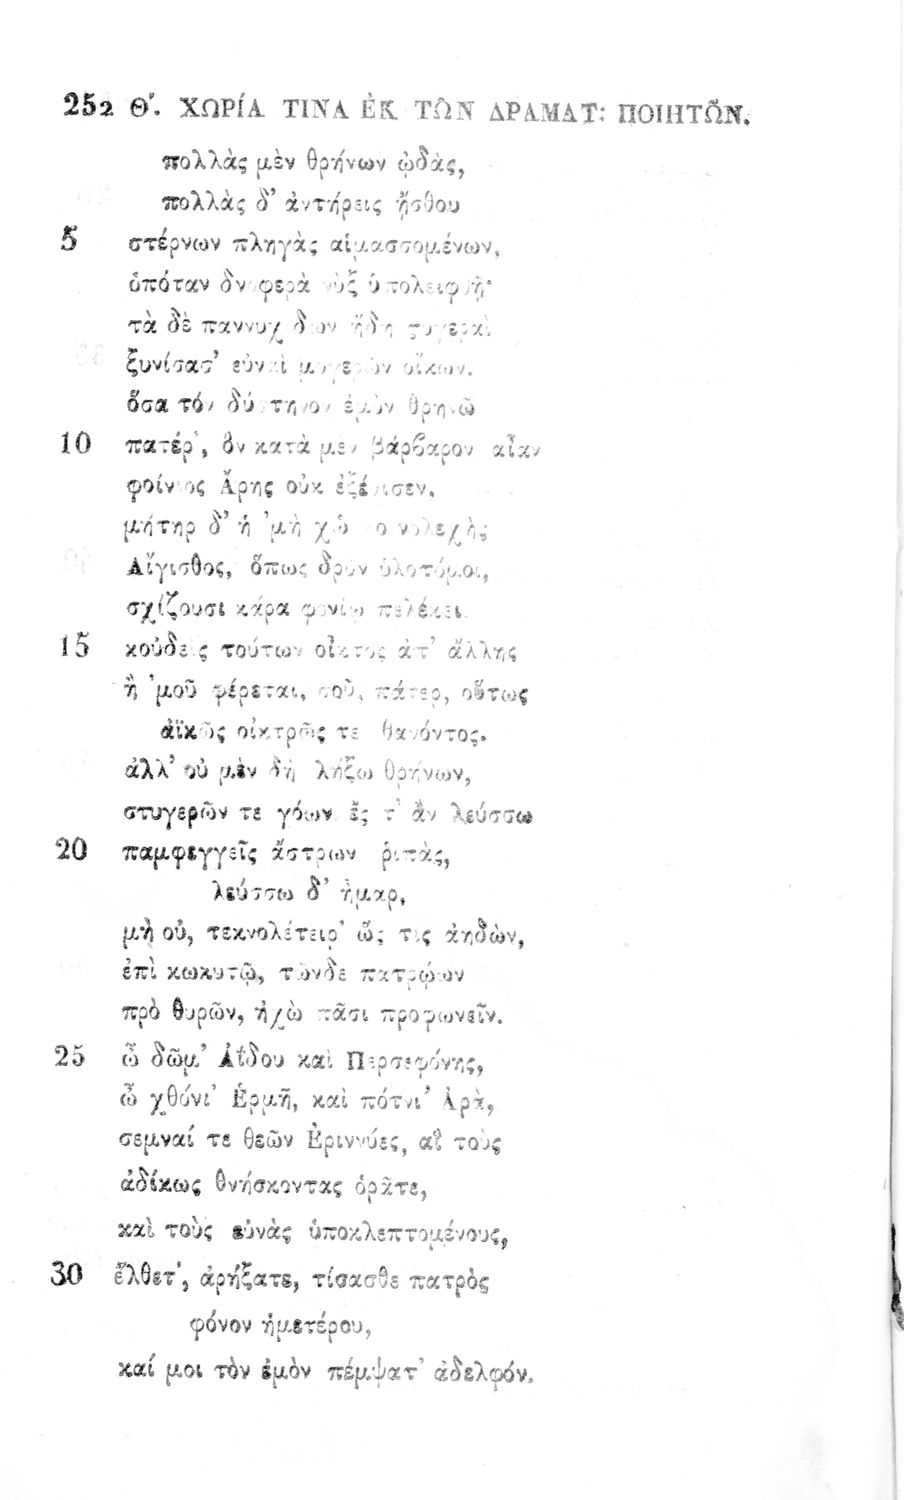 252 Θ'. ΧΩΡΊΑ ΤΙΝΑ ἘΚ ΤΩ̃Ν ΔΡΑΜΑΤ: ΠΟΙΗΤΩ̃Ν.
πολλὰς μὲν θρήνων ᾠδὰς,
πολλὰς δ' ἀντήρεις ᾔσθου
5 στέρνων πληγὰς αἱμασσομένων,
ὁπόταν δνοφερὰ νὺξ ὑπολειφθῇ·
τὰ δὲ παννυχίδων ἤδη στυγεραὶ
ξυνίσασ' εὐναὶ μογερῶν οἴκων,
ὅσα τὸν δύστηνον ἐμὸν θρηνῶ
10 πατέρ', ὃν κατὰ μὲν βάρβαρον αἶαν
φοίνιος Ἄρης οὐκ ἐξένισεν,
μήτηρ δ' ἡ 'μὴ χὠ κοινολεχὴς
Αἴγισθος, ὅπως δρῦν ὑλοτόμοι,
σχίζουσι κάρα φονίῳ πελέκει.
15 κοὐδεὶς τούτων οἶκτος ἀπ' ἄλλης
ἢ 'μοῦ φέρεται, σοῦ, πάτερ, οὕτως
ἀϊκῶς οἰκτρῶς τε θανόντος.
ἀλλ' οὐ μὲν δὴ λήξω θρήνων,
στυγερῶν τε γόων ἔς τ' ἂν λεύσσω
20 παμφεγγεῖς ἄστρων ῥιπὰς,
λεύσσω δ' ἦμαρ,
μὴ οὐ, τεκνολέτειρ' ὥς τις ἀηδὼν,
ἐπὶ κωκυτῷ, τῶνδε πατρῴων
πρὸ θυρῶν, ἠχὼ πᾶσι προφωνεῖν.
25 ὦ δῶμ' Ἀΐδου καὶ Περσεφόνης,
ὦ χθόνι' Ἑρμῆ, καὶ πότνι' Ἀρὰ,
σεμναί τε θεῶν Ἐριννύες, αἳ τοὺς
ἀδίκως θνήσκοντας ὁρᾶτε,
καὶ τοὺς εὐνὰς ὑποκλεπτομένους,
30 ἔλθετ', ἀρήξατε, τίσασθε πατρὸς
φόνον ἡμετέρου,
καί μοι τὸν ἐμὸν πέμψατ' ἀδελφόν.